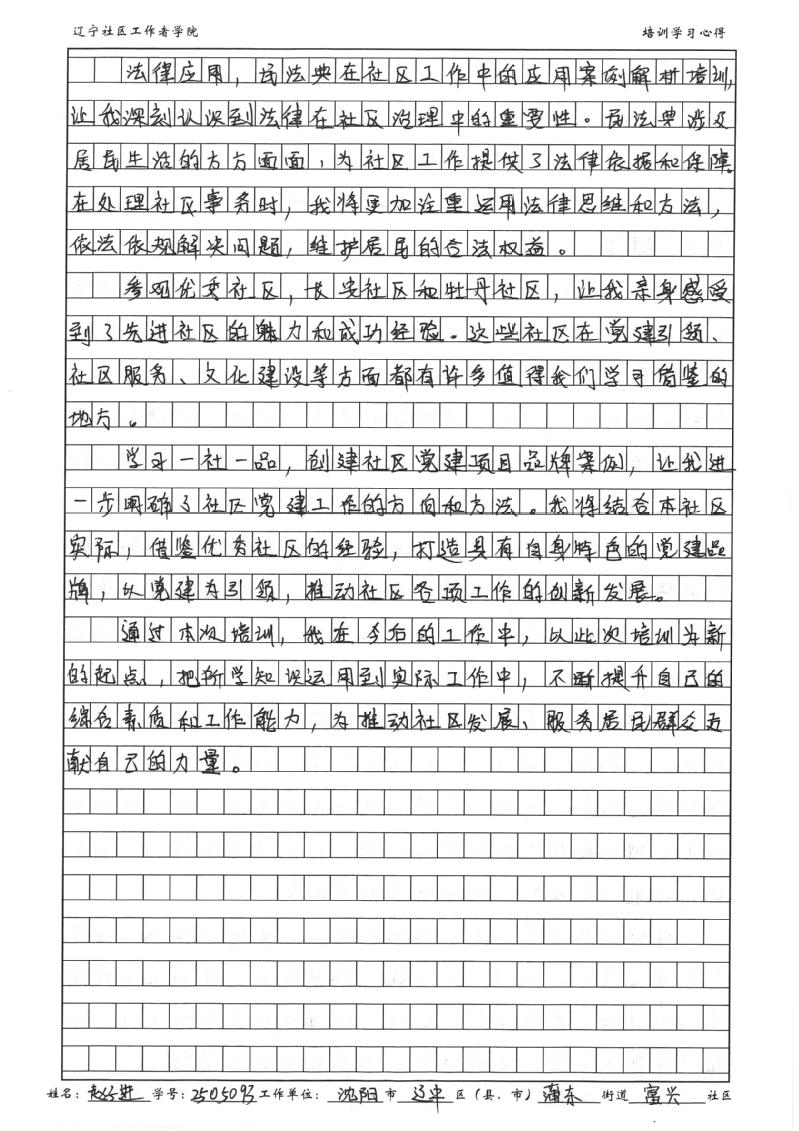 辽宁社区工作者学院 培训学习心得
法律应用，民法典在社区工作中的应用案例解析培训，
让我深刻认识到法律在社区治理中的重要性。民法典涉及
居民生活的方方面面，为社区工作提供了法律依据和保障。
在处理社区事务时，我将更加注重运用法律思维和方法，
依法依规解决问题，维护居民的合法权益。
参观优秀社区，长安社区和牡丹社区，让我亲身感受
到了先进社区的魅力和成功经验。这些社区在党建引领、
社区服务、文化建设等方面都有许多值得我们学习借鉴的
地方。
学习一社一品，创建社区党建项目品牌案例，让我进
一步明确了社区党建工作的方向和方法。我将结合本社区
实际，借鉴优秀社区的经验，打造具有自身特色的党建品
牌，以党建为引领，推动社区各项工作的创新发展。
通过本次培训，我在今后的工作中，以此次培训为新
的起点，把所学知识运用到实际工作中，不断提升自己的
综合素质和工作能力，为推动社区发展、服务居民群众贡
献自己的力量。
姓名： 学号：2505093 工作单位：沈阳市 辽中 区（县、市）蒲东 街道 富兴 社区